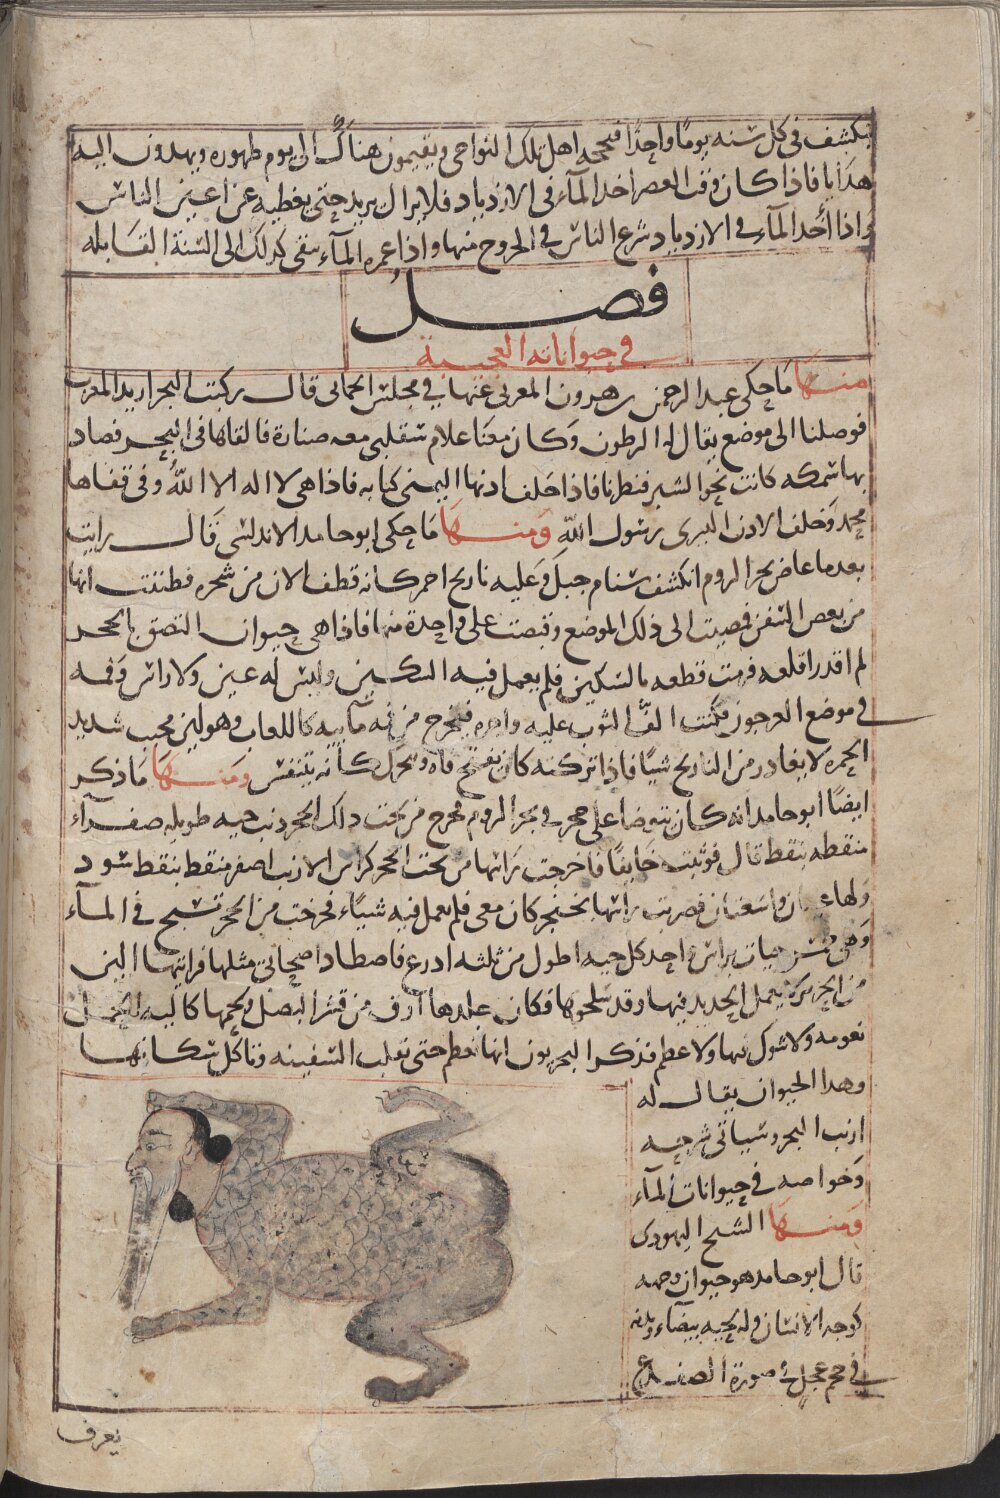 ينكشف في كل سنة يوما واحدا فيحجه اهل تلك النواحي ويقيمون هناك الى يوم ظهوره ويهدون اليه
هدايا فاذا كان وقت العصر اخذ المآء في الازدياد فلا يزال يزيد حتى يغطيه عن اعين الناس
واذا اخذ المآء في الازدياد شرع الناس في الخروج منها واذا غمره المآء يبقى كذلك الى السنة القابله
فصل
في حيواناته العجيبة
منها ما حكى عبد الرحمن بن هرون المغربي قال ركبت البحر اريد المغرب
فوصلنا الى موضع يقال له الرطون وكان معنا غلام سقلبي معه صنارة فالقاها في البحر فصاد
بها سمكه كانت نحوا لشبر فنظرنا فاذا خلف اذنها اليمنى كتابه فاذا هي لا اله الا الله وفي قفاها
محمد وخلف الاذن اليسرى رسول الله ومنها ما حكى ابو حامد الاندلسي قال رايت
بعد ما غاض بحر الروم انكشف سنام جبل وعليه نارنج احمر كانه قطف الان من شجره فظننت انها
من بعض السفن فمضيت الى ذلك الموضع وقبضت على واحدة منها فاذا هي حيوان التصق بالحجر
لم اقدر اقلعه فرمت قطعه بالسكين فلم يعمل فيه السكين وليس له عين ولا راس وفمه
في موضع العرجون فكنت الف الثوب عليه واجره فيخرج من فيه مآييه كاللعاب وهو لين محبب شديد
الحمره لا يغادر من النارنج شيا فاذا تركته كان يفتح فاه ويحرك كانه يتنفس ومنها ما ذكر
ايضا ابو حامد انه كان يتوضا على حجر في بحر الروم فخرج من تحت ذلك الحجر ذنب حيه طويله صفرآء
منقطه بنقط قال فوثبت خايفا فاخرجت راسها من تحت الحجر كراس الارنب اصفر منقط بنقط سود
ولها عينان واسعتان فضربت راسها بخنجر كان معي فلم يعمل فيه شياء فخرجت من الحجر تسبح في المآء
وهي حيات براس واحد كل حيه اطول من ثلثه اذرع فاصطاد اصحابي مثلها فرايتها الين
من الحرير لا يعمل الحديد فيها وقد سلخوها فكان جلدها ارق من قشر البصل ولحمها كاليه الحمل
نعومه ولا شوك فيها ولا عظم فذكر البحريون انها تعظم حتى تقلب السفينه وتاكل سكانها
وهذا الحيوان يقال له
ارنب البحر وسياتي شرحه
وخواصه في حيوانات المآء
ومنها الشيخ اليهودي
قال ابو حامد هو حيوان وجهه
كوجه الانسان وله لحيه بيضآء وبدنه
في حجم عجل في صورة الضفدع
يعرف